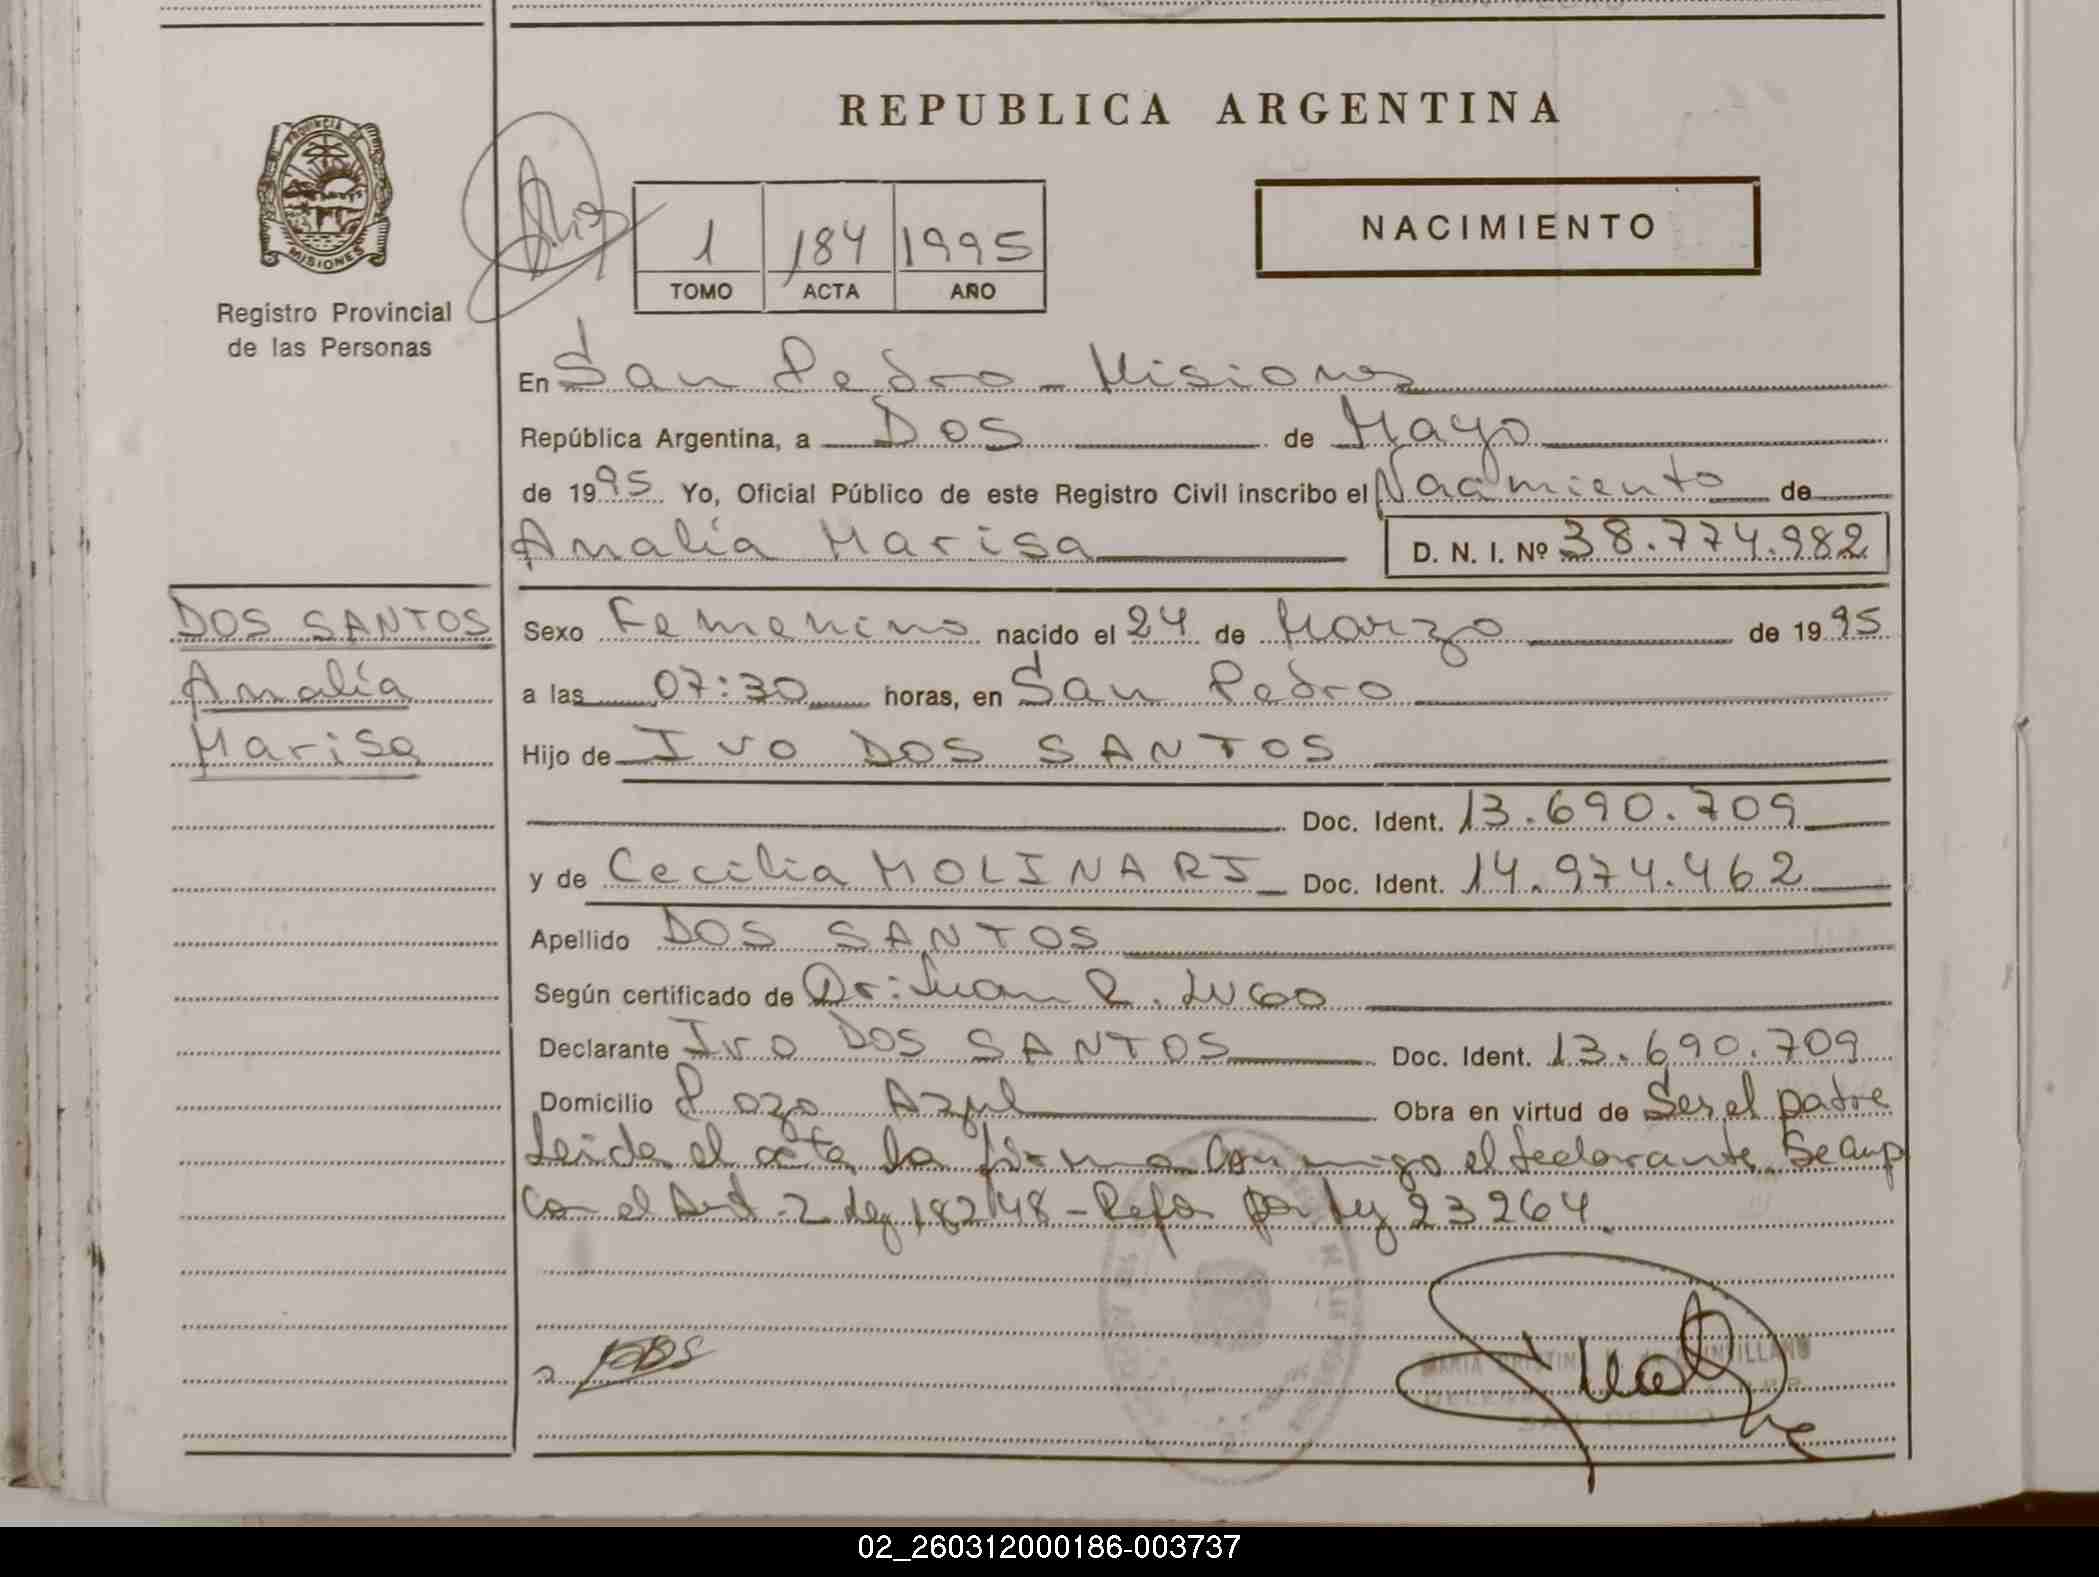 REPUBLICA ARGENTINA
PROVINCIA DE
MISIONES
Registro Provincial
de las Personas
1 184 1995
TOMO ACTA AÑO
NACIMIENTO
En San Pedro - Misiones
República Argentina, a Dos de Mayo
de 1995 Yo, Oficial Público de este Registro Civil inscribo el Nacimiento de
Analía Marisa D. N. I. Nº 38.774.982
DOS SANTOS
Analía
Marisa
Sexo Femenino nacido el 24 de Marzo de 1995
a las 07:30 horas, en San Pedro
Hijo de Ivo DOS SANTOS
Doc. Ident. 13.690.709
y de Cecilia MOLINARI Doc. Ident. 14.974.462
Apellido DOS SANTOS
Según certificado de Dr: Juan R. Lugo
Declarante Ivo DOS SANTOS Doc. Ident. 13.690.709
Domicilio Pozo Azul Obra en virtud de Ser el padre
Leida el acta la firma conmigo el declarante. Se cump
con el Art. 2 ley 18248 - Refor por ley 23264.
02_260312000186-003737